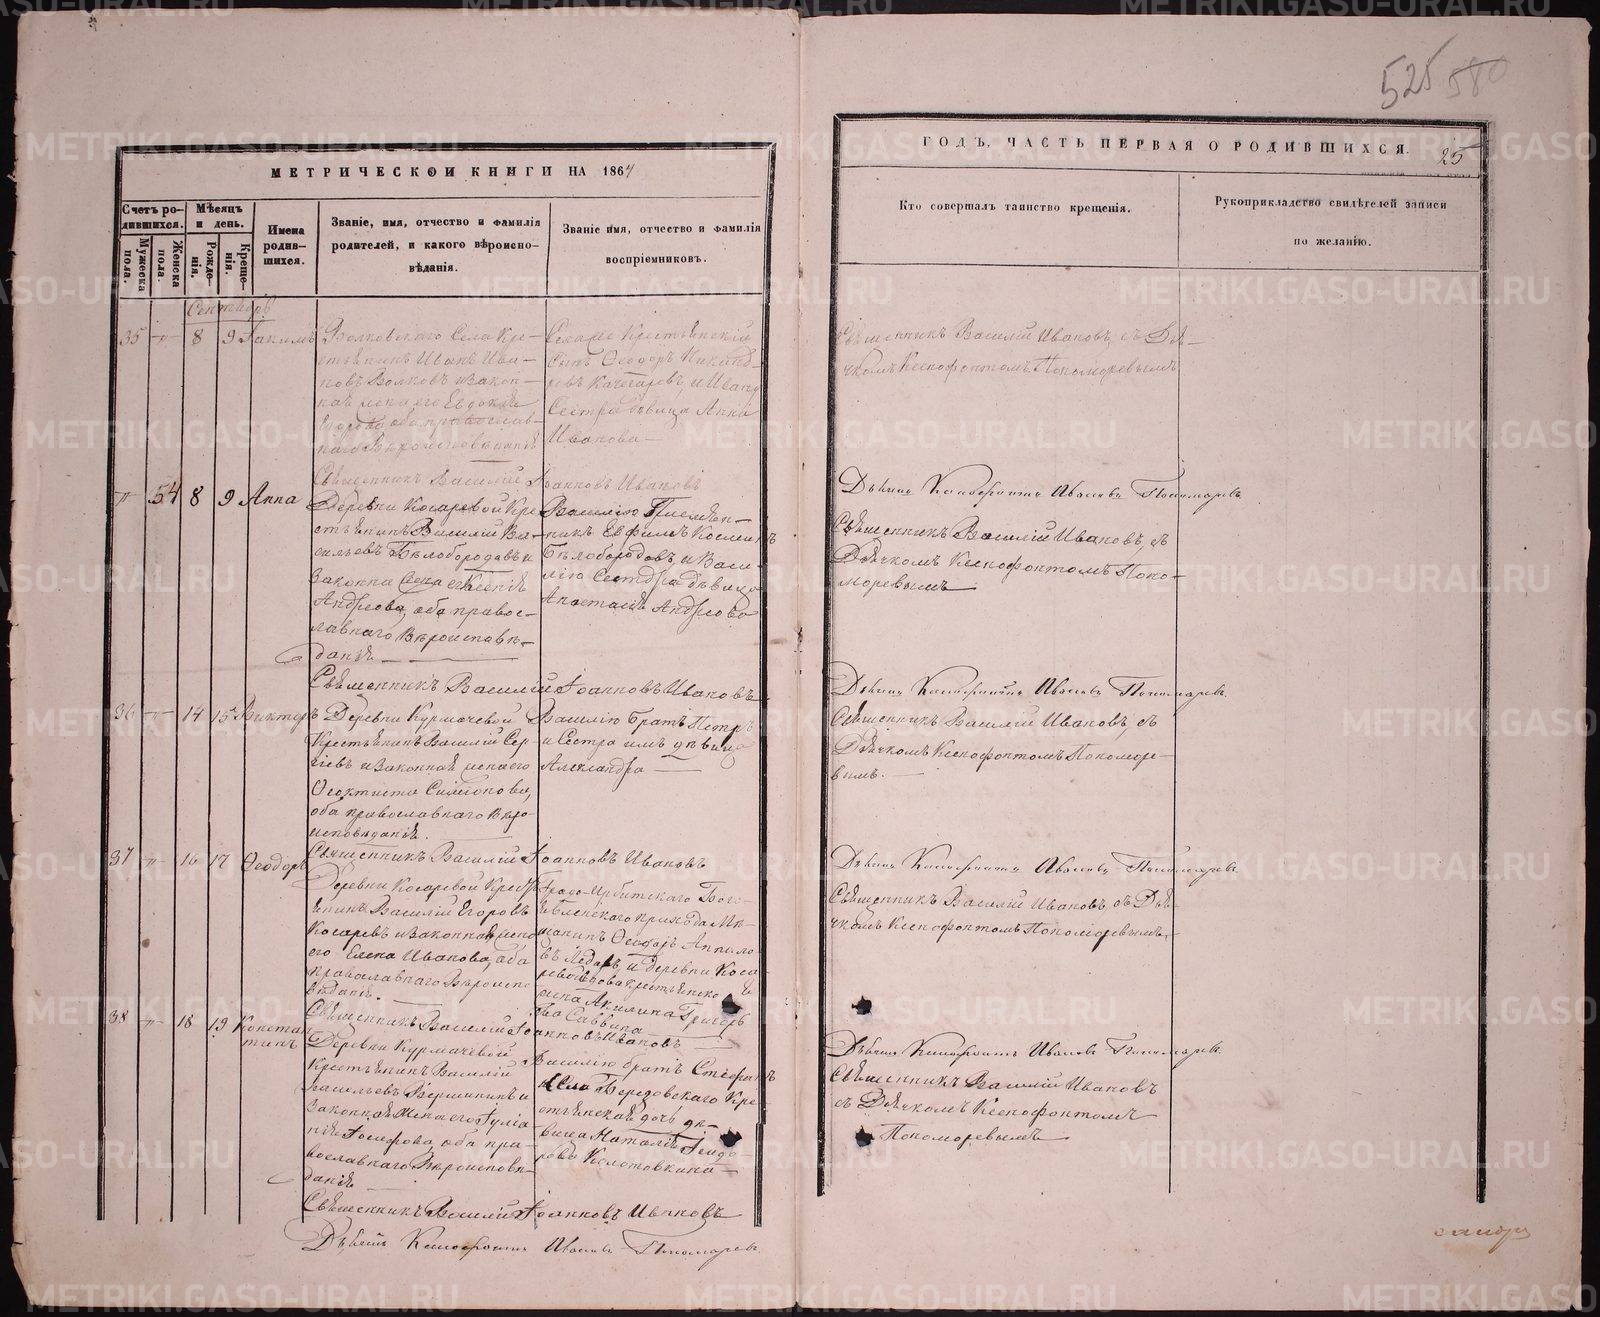 525 580
МЕТРИЧЕСКОЙ КНИГИ НА 1864
Счетъ ро-
дившихся.
Мужеска
пола.
Женска
пола.
Мѣсяцъ
и день.
Рожде-
нія.
Креще-
нія.
Имена
родив-
шихся.
Званіе, имя, отчество и фамилія
родителей, и какого вѣроиспо-
вѣданія.
Званіе имя, отчество и фамилія
воспріемниковъ.
ГОДЪ, ЧАСТЬ ПЕРВАЯ О РОДИВШИХСЯ.
25
Кто совершалъ таинство крещенія.
Рукоприкладство свидѣтелей записи
по желанію.
Сентябрь
35 8 9 Іакимъ
Волковскаго Села Кре-
стьянинъ Иванъ Ива-
новъ Волковъ и закон-
ная жена его Евдокія
Егорова оба православ-
наго Вѣроисповѣданія
Селаже Крестьянскій
Сынъ Ѳеодоръ
и Ивану
Сестра дѣвица Анна
Иванова
Священникъ Василій Ивановъ, съ Дья-
чкомъ Ксенофонтомъ Пономоревымъ
Священникъ Василій Іоанновъ Ивановъ
Ксенофонтъ Ивановъ Пономаревъ
54 8 9 Анна
Деревни Косаревой Кре
стьянинъ Василій Ва-
сильевъ Бѣлобородовъ и
Законна Жена его Ксенія
Андреева, оба правос-
лавнаго Вѣроисповѣ-
данія
Василію Племян-
никъ Ефимъ Космин
Бѣлобородовъ и Васи-
лію Сестра дѣвица
Анастасія Андреева
Священникъ Василій Ивановъ, съ
Дьячкомъ Ксенофонтомъ Поно-
моревымъ
Священникъ Василій Іоанновъ Ивановъ
Ксенофонтъ Ивановъ Пономаревъ
36 14 15 Викторъ
Деревни Курмачевой
Крестьянинъ Василій Сер-
гіевъ и Законная жена его
Ѳеоктиста Симеонова,
оба православнаго Вѣро
исповѣданія.
Василію братъ Петръ
и Сестра имъ дѣвица
Александра
Священникъ Василій Ивановъ, съ
Дьячкомъ Ксенофонтомъ Пономоре-
вымъ.
Священникъ Василій Іоанновъ Ивановъ
Ксенофонтъ Ивановъ Пономаревъ
37 16 17 Ѳеодоръ
Деревни Косаревой Крест
янинъ Василій Егоровъ
Косаревъ и Законная жена
его Елена Иванова, оба
православнаго Вѣроиспо
вѣданія.
Градо-Ирбитскаго Бого-
явленскаго прихода Мѣ-
щанинъ Ѳеодоръ
и деревни Коса
ревой вдова крестьянска
жена Акилина Григорь
ева Саввина
Священникъ Василій Ивановъ, съ Дья-
чкомъ Ксенофонтомъ Пономоревымъ
Священникъ Василій Іоанновъ Ивановъ
Ксенофонтъ Ивановъ Пономаревъ
38 18 19 Констан
тинъ
Деревни Курмачевой
Крестьянинъ Василій
Васильевъ Вершининъ и
Законная Жена его Іуліа-
нія Іосифова, оба пра-
вославнаго Вѣроисповѣ-
данія
Василію братъ Стефанъ
и Села Березовскаго Кре
стьянская дочь дѣ-
вица Наталія Ѳеодо-
рова Колотовкина
Священникъ Василій Ивановъ
съ Дьячкомъ Ксенофонтомъ
Пономоревымъ
Священникъ Василій Іоанновъ Ивановъ
Ксенофонтъ Ивановъ Пономаревъ
METRIKI.GASO-URAL.RU